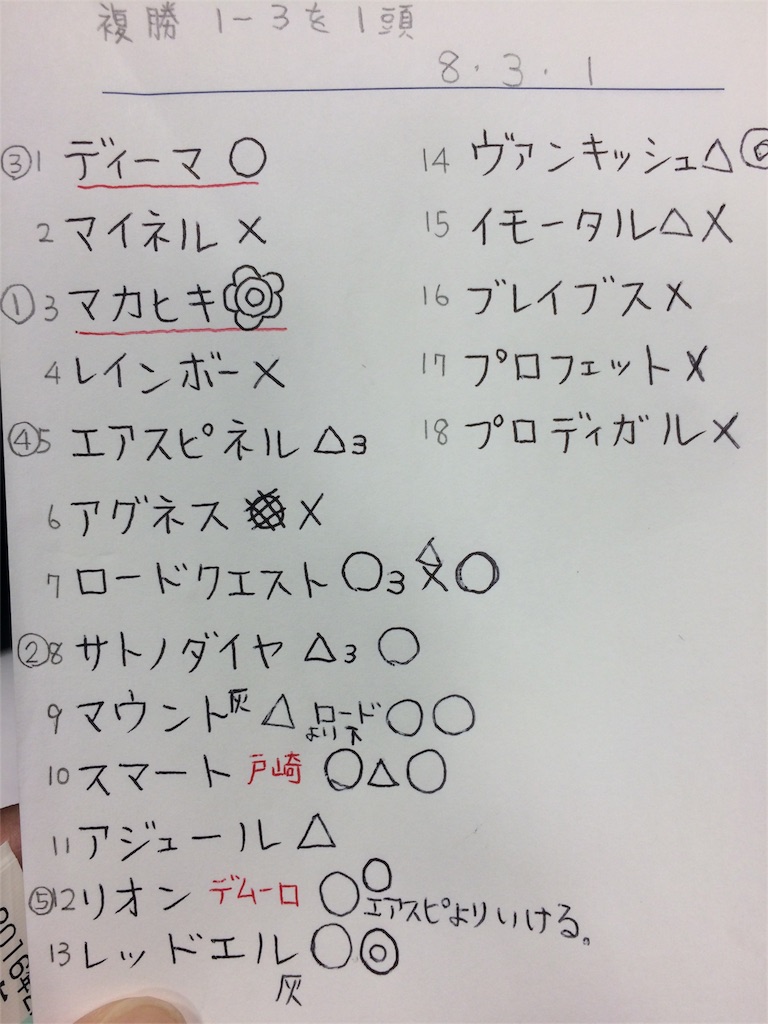 複勝 1-3を1頭
8・3・1
③1 ディーマ ○
2 マイネル ×
①3 マカヒキ
4 レインボー ×
④5 エアスピネル △3
6 アグネス ×
7 ロードクエスト ○3 △ × ○
②8 サトノダイヤ △3 ○
9 マウント灰 △ ロードより下 ○○
10 スマート 戸崎 ○△○
11 アジュール △
⑤12 リオン デムーロ ○○ エアスピよりいける。
13 レッドエル ○◎
灰
14 ヴァンキッシュ△
15 イモータル△×
16 ブレイブス×
17 プロフェット×
18 プロディガル×
2016年